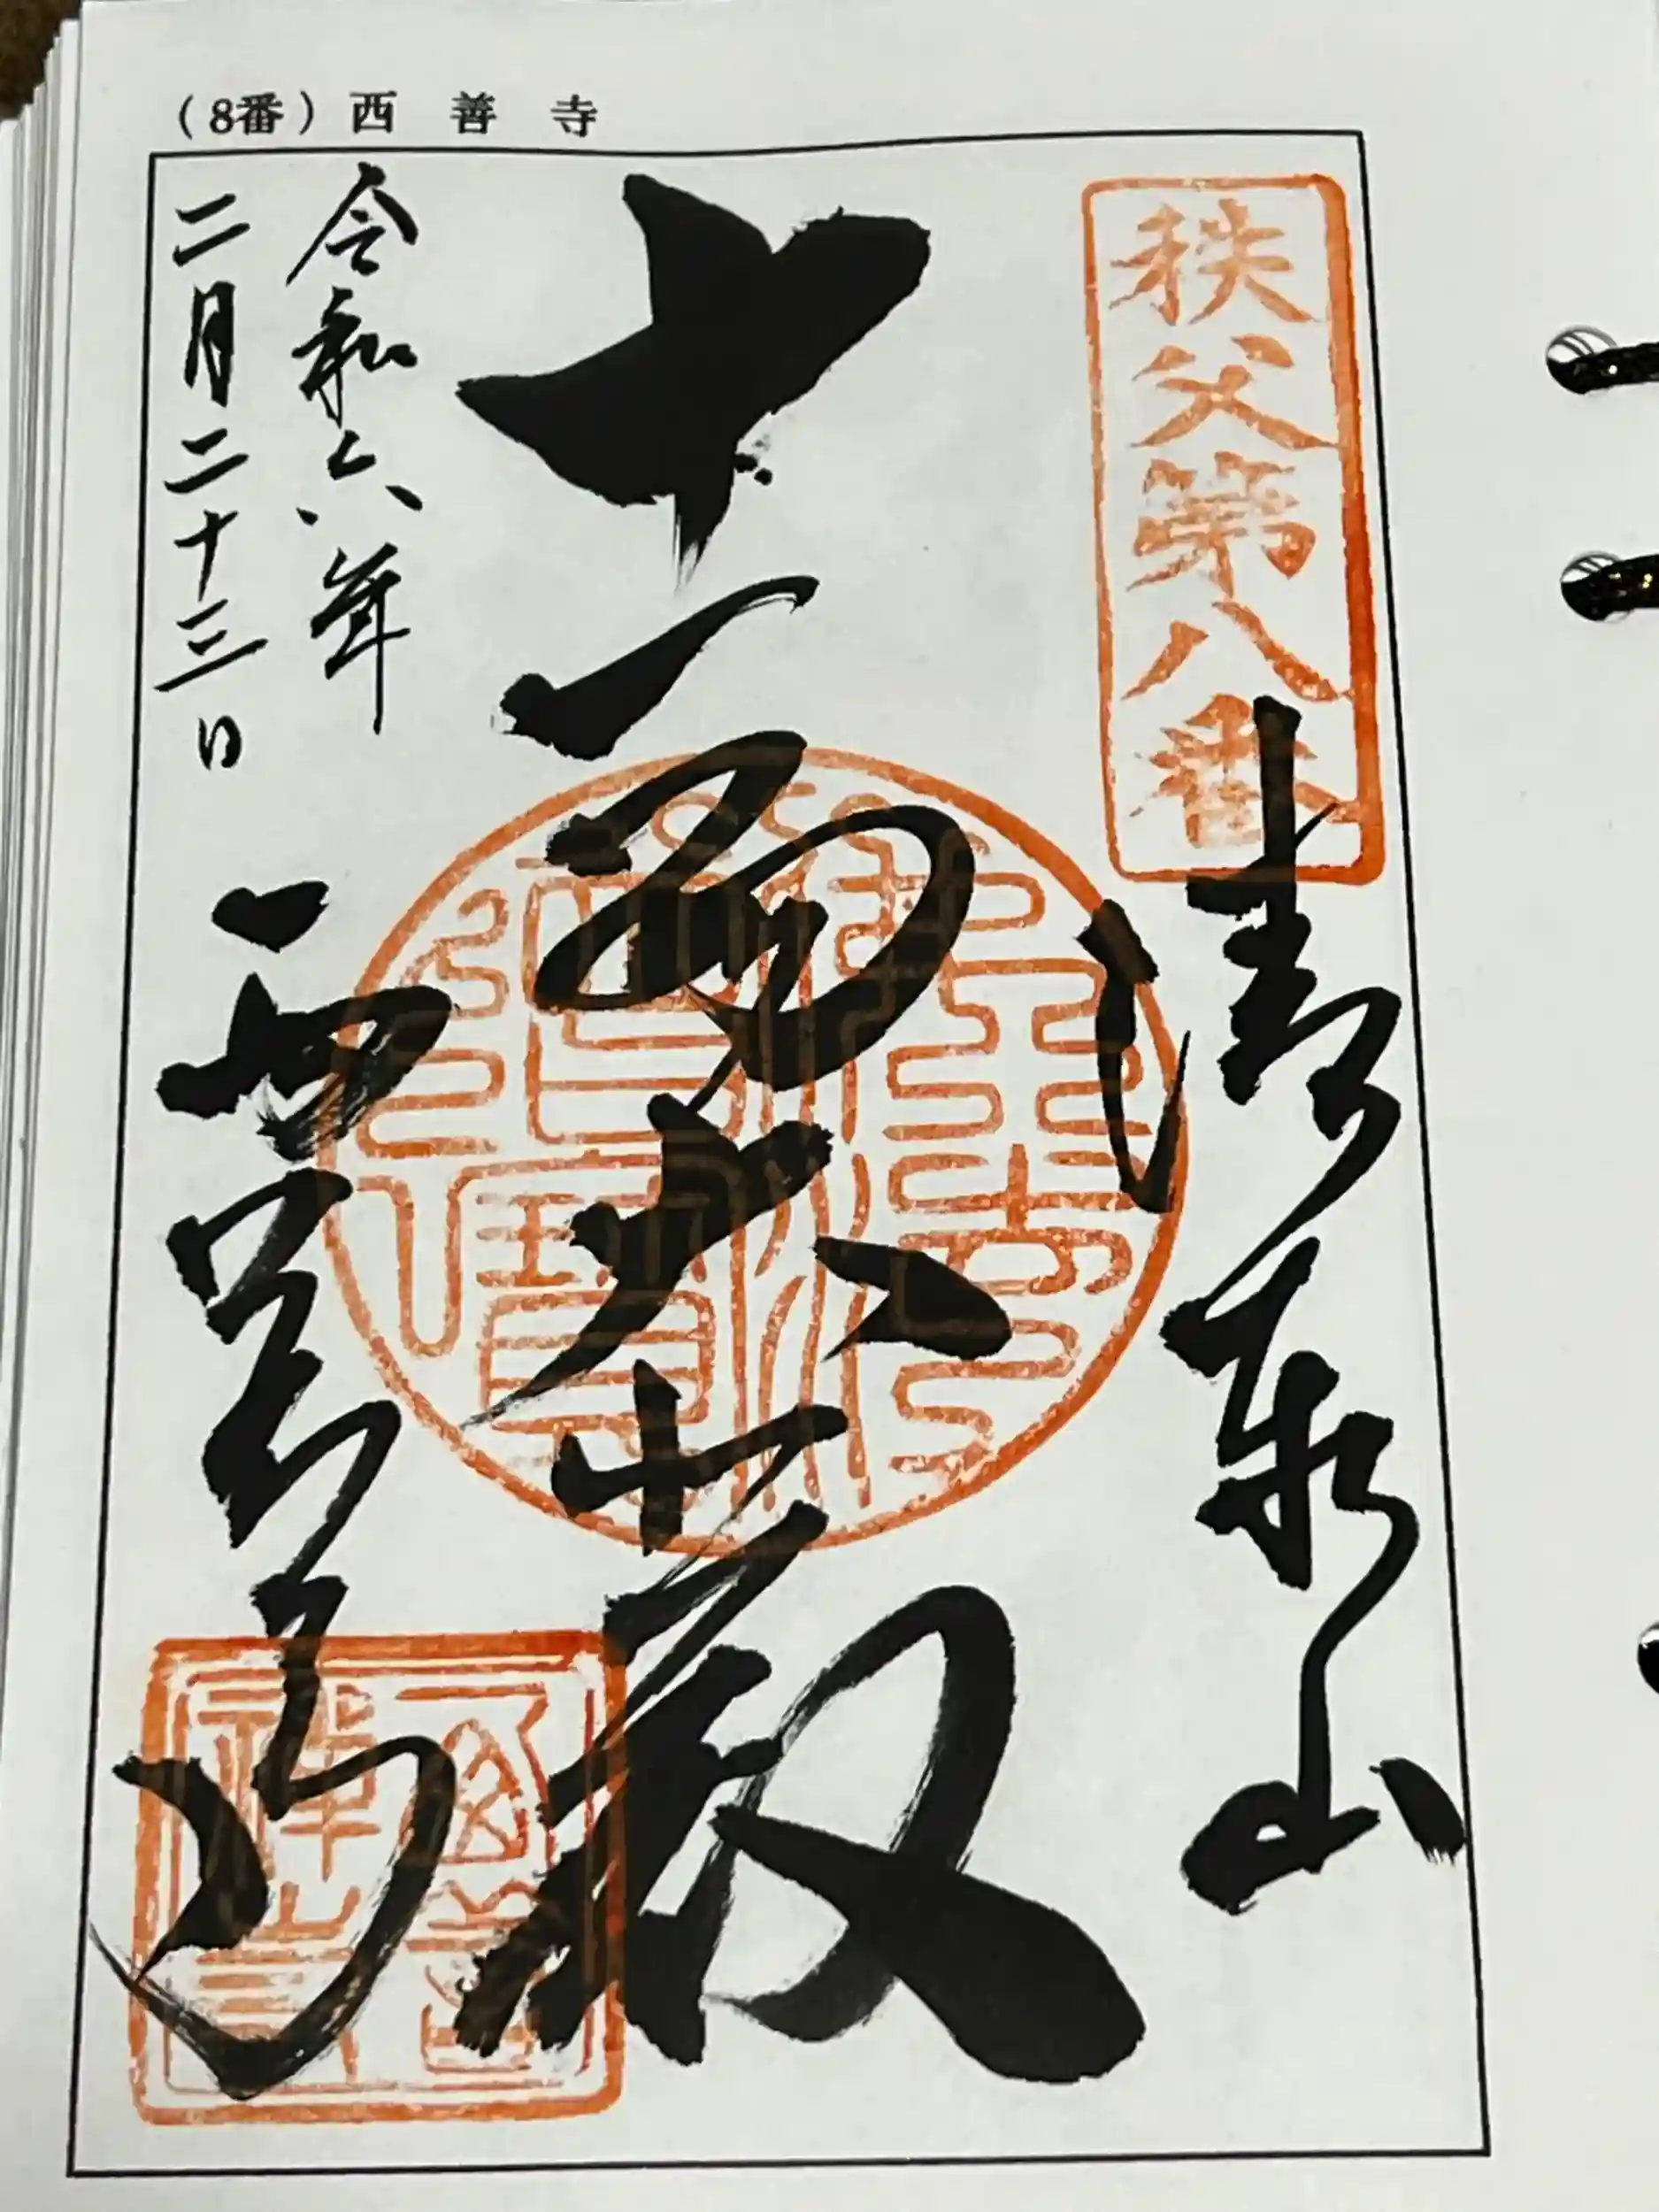 (8番)西善寺
秩父第八番
清泰山
十一面大士殿
西善寺
令和六年
二月二十三日